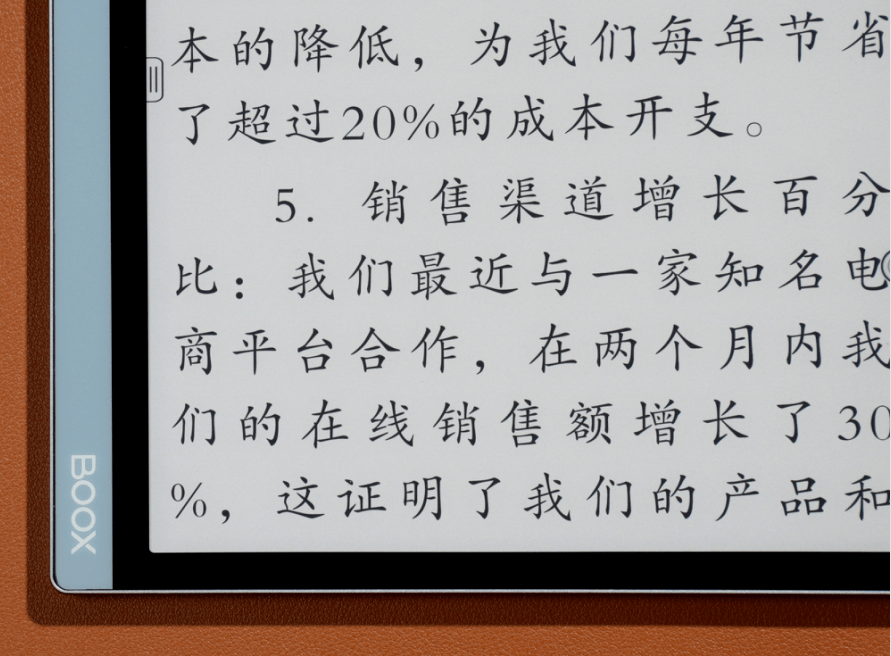 本的降低，为我们每年节省
了超过20%的成本开支。
5. 销售渠道增长百分
比：我们最近与一家知名电
商平台合作，在两个月内我
们的在线销售额增长了30
%，这证明了我们的产品和
BOOX